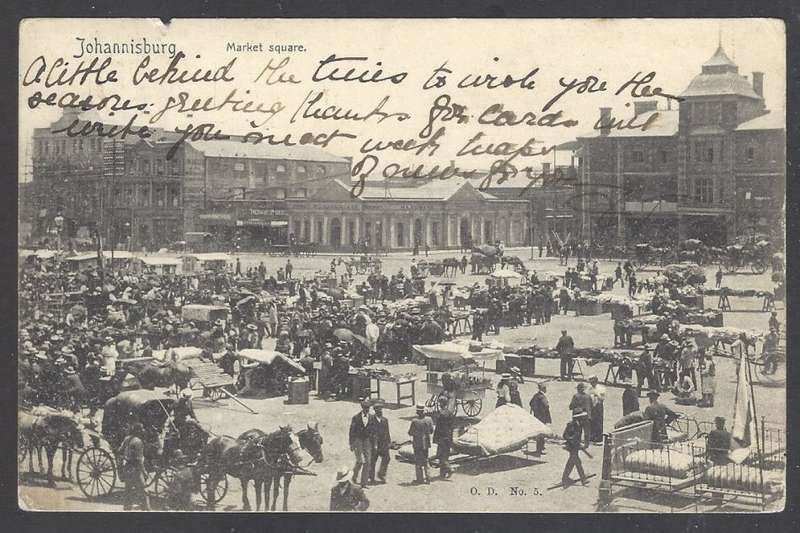 Johannisburg   Market square.
A little behind the times to wish you the
seasons greeting thanks for cards will
write you next week heaps
of news for you
O. D. No. 5.